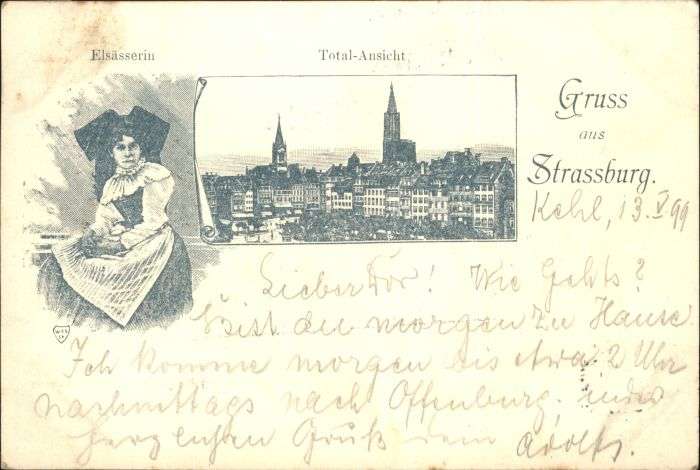 Elsässerin
Total-Ansicht
Gruss
aus
Strassburg.
Kehl, 13. V 99
Lieber Dör! Wie Gehts?
Bist du morgen zu Hause
Ich komme morgen bis etwa 2 Uhr
nachmittags nach Offenburg.
herzlichen Gruß dein Adolf.